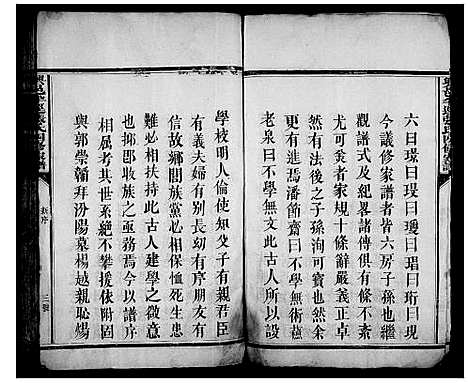 六曰璟曰琝曰瓊曰瑁曰珩曰現
今議修家譜者皆六房子孫也繼
觀譜式及畧諸傳俱有條不紊
尤可羨者家規十條辭嚴義正卓
然有法後之子孫洵可寳也然余
更有進焉潘節齋曰不學無術蘇
老泉曰不學無文此古人所以設
學校明人倫使知父子有親君臣
有義夫婦有别長幼有序朋友有
信故鄉閭族黨必相保恤死生患
難必相扶持此古人建學之微意
也抑即收族之亟務焉今以譜序
相屬考其世系絶不攀援依附固
與郭崇韜拜汾陽墓楊越親恥煬
序
三